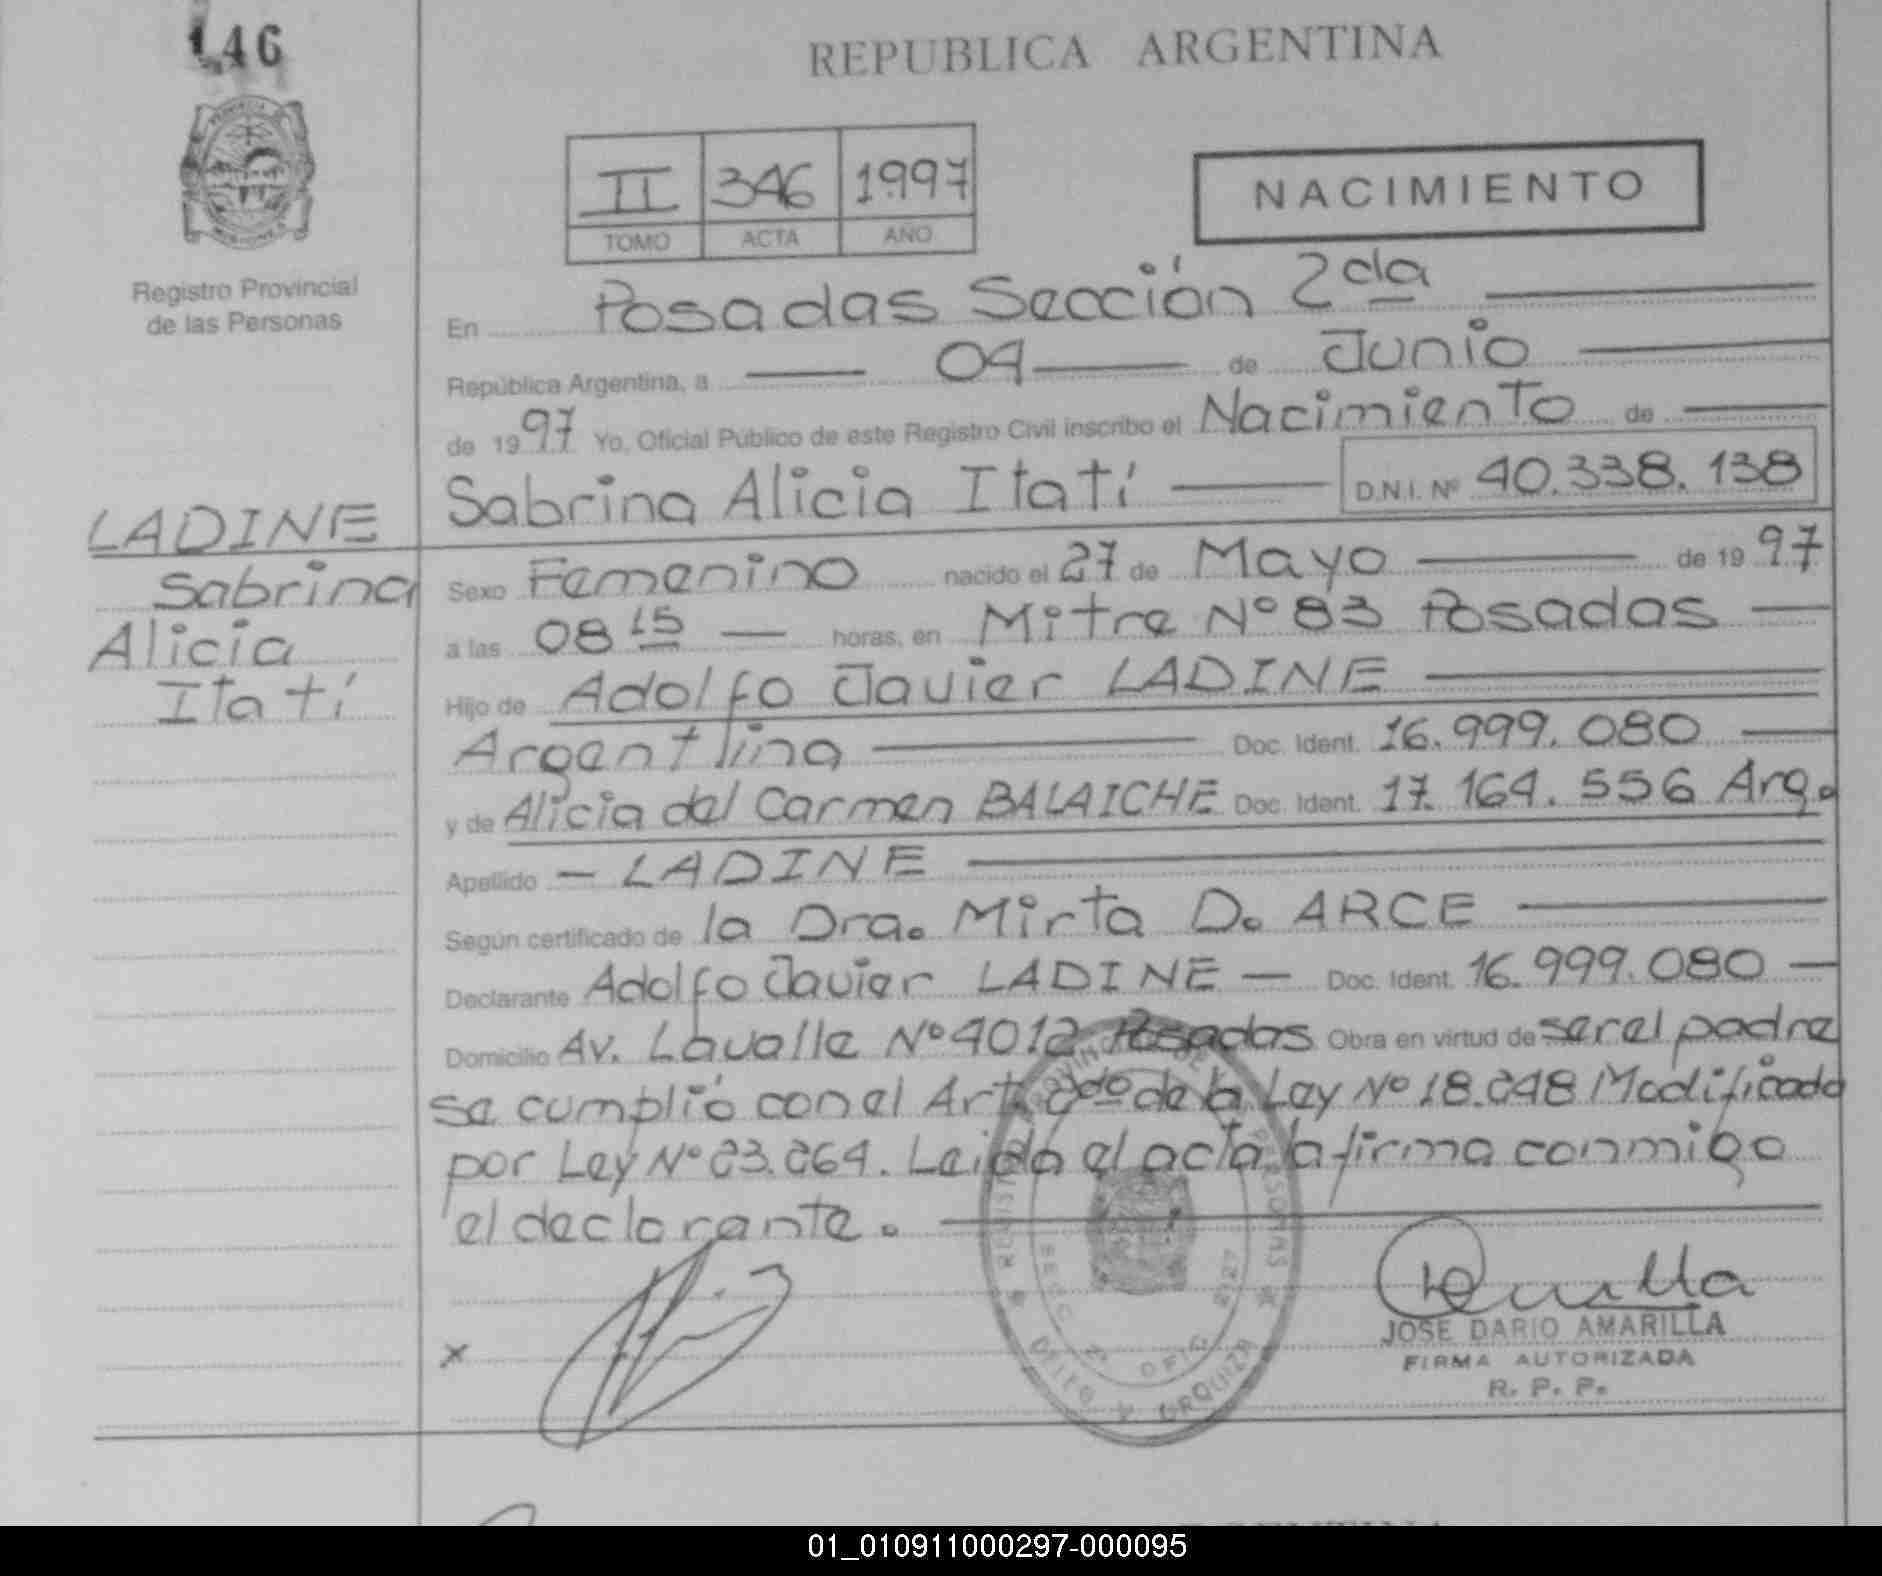 146
REPUBLICA ARGENTINA
II 346 1997
TOMO ACTA AÑO
NACIMIENTO
Registro Provincial
de las Personas
En Posadas Sección 2da
República Argentina, a 04 de Junio
de 1997 Yo, Oficial Público de este Registro Civil inscribo el Nacimiento de
Sabrina Alicia Itatí D.N.I. Nº 40.338.138
LADINE
Sabrina
Alicia
Itatí
Sexo Femenino nacido el 27 de Mayo de 1997
a las 08 15 horas, en Mitre Nº 83 Posadas
Hijo de Adolfo Javier LADINE
Argentina Doc. Ident. 16.999.080
y de Alicia del Carmen BALAICHE Doc. Ident. 17.164.556 Arg.
Apellido LADINE
Según certificado de la Dra. Mirta D. ARCE
Declarante Adolfo Javier LADINE Doc. Ident. 16.999.080
Domicilio Av. Lavalle Nº 4012 Posadas Obra en virtud de ser el padre
se cumplió con el Art. 2do de la Ley Nº 18.248 Modificado
por Ley Nº 23.264. Leida el acta la firma conmigo
el declarante.
x
JOSE DARIO AMARILLA
FIRMA AUTORIZADA
R. P. P.
01_010911000297-000095